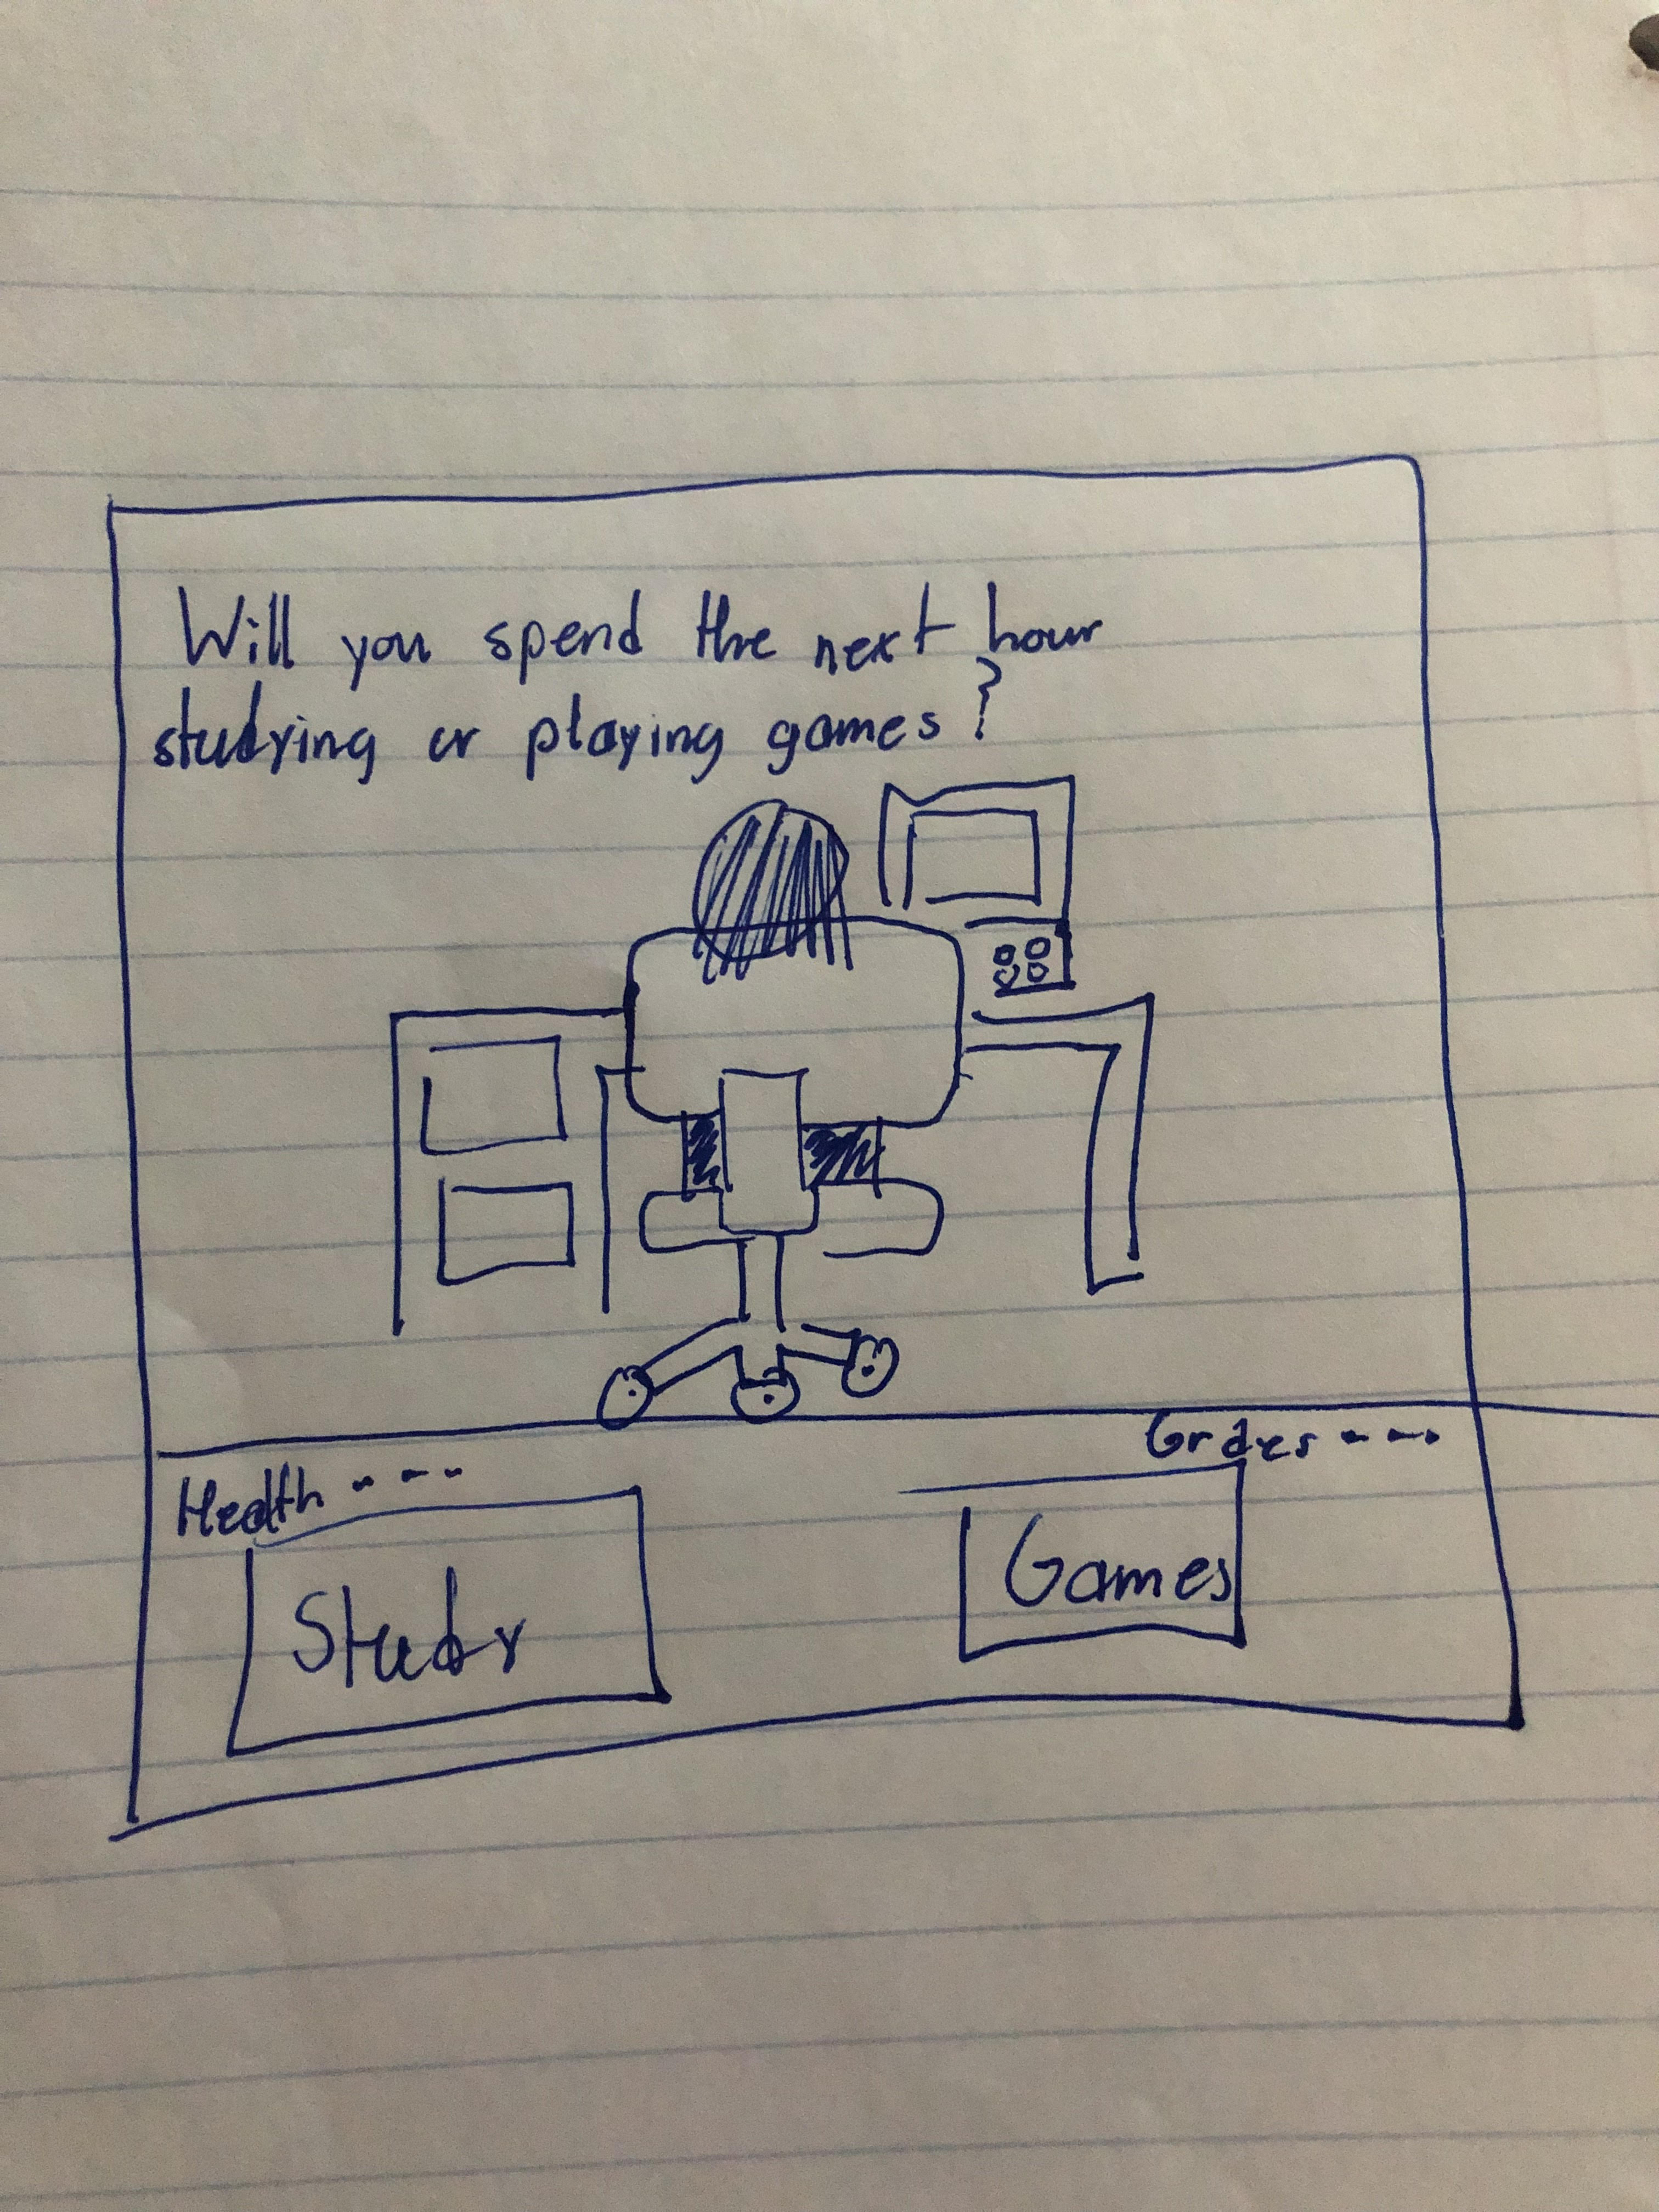 Will you spend the next hour
studying or playing games?
Health ---
Grades ---
Study
Games